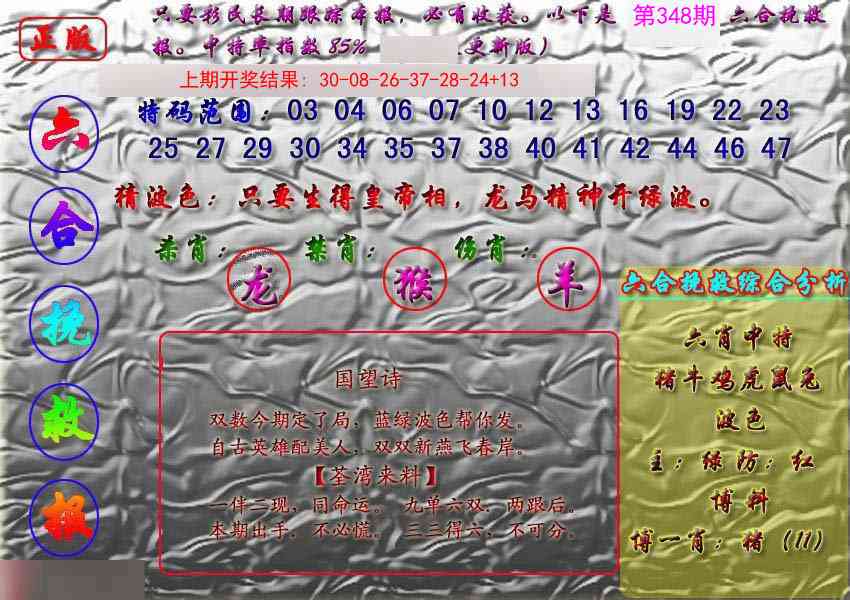 正版
只要彩民长期跟踪本报，必有收获。以下是 第348期 六合挽救
报。中特率指数85% 更新版）
上期开奖结果：30-08-26-37-28-24+13
六合挽救报
特码范围：03 04 06 07 10 12 13 16 19 22 23
25 27 29 30 34 35 37 38 40 41 42 44 46 47
猜波色：只要生得皇帝相，龙马精神开绿波。
杀肖：龙 禁肖：猴 伤肖：羊
国望诗
双数今期定了局，蓝绿波色帮你发。
自古英雄配美人，双双新燕飞春岸。
【荃湾来料】
一伴二现，同命运。 九单六双，两跟后。
本期出手，不必慌。 三三得六，不可分。
六合挽救综合分析
六肖中特
猪牛鸡虎鼠兔
波色
主：绿防：红
博料
博一肖：猪（11）